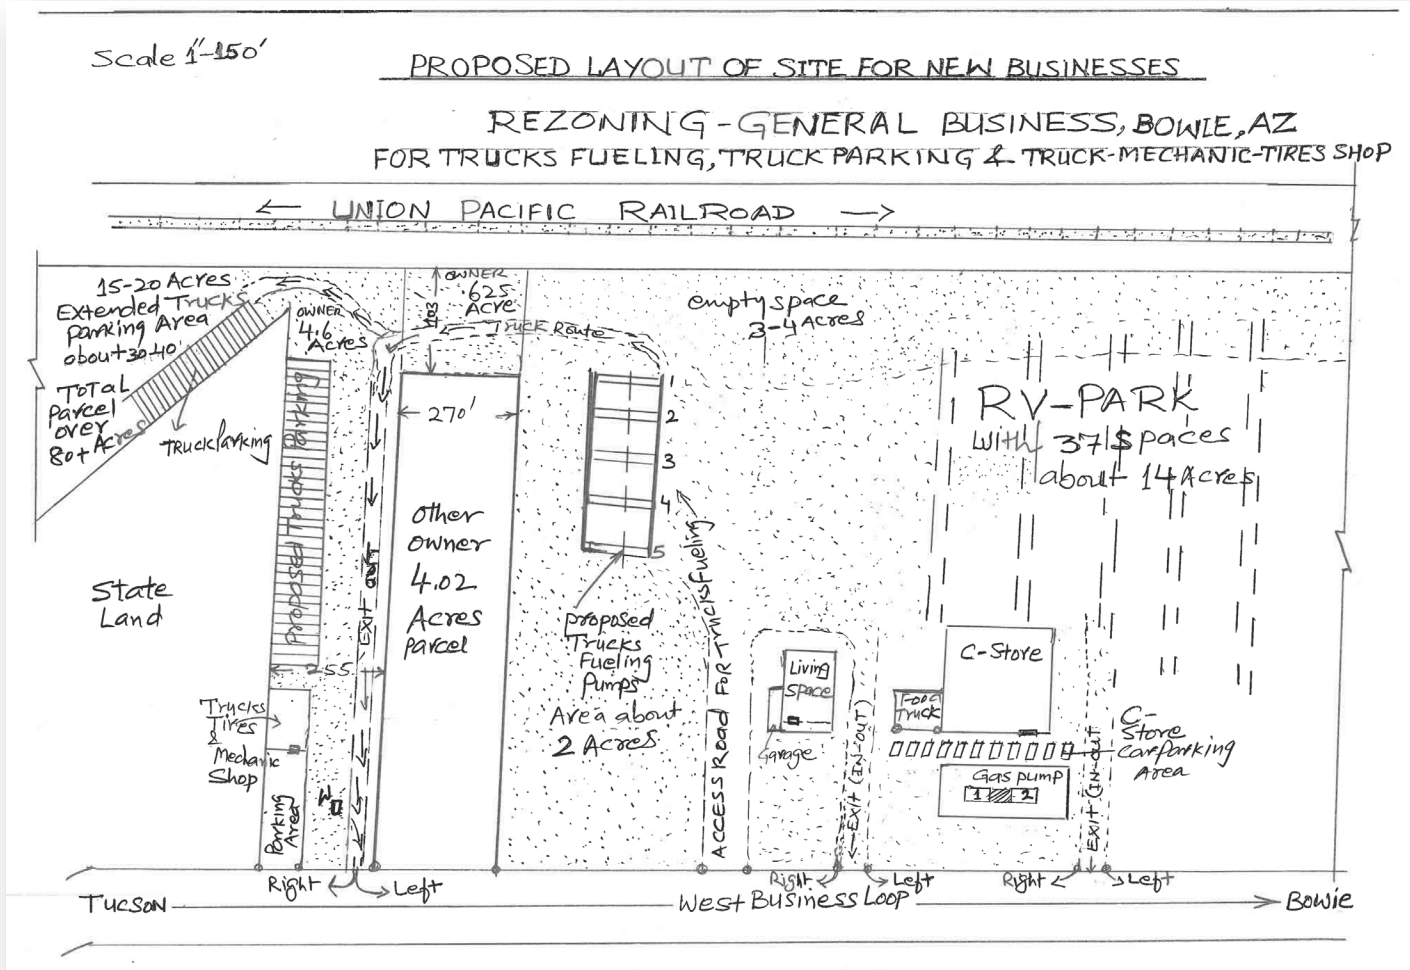 Scale 1"-150'
PROPOSED LAYOUT OF SITE FOR NEW BUSINESSES
REZONING-GENERAL BUSINESS, BOWIE, AZ
FOR TRUCKS FUELING, TRUCK PARKING & TRUCK-MECHANIC-TIRES SHOP
← UNION PACIFIC RAILROAD →
15-20 Acres
Extended Trucks
Parking Area
about 30-40'
TOTAL
Parcel
over
80+ Acres
Truck Parking
OWNER
4.6
Acres
103'
OWNER
.625
Acre
Truck Route
empty space
3-4 Acres
RV-PARK
with 37 Spaces
about 14 Acres
270'
1
2
3
4
5
Proposed Trucks Parking
Exit out
other
owner
4.02
Acres
Parcel
State
Land
proposed
Trucks
Fueling
Pumps
Area about
2 Acres
ACCESS Road FOR Trucks Fueling
255
Trucks
Tires
&
Mechanic
Shop
Parking
Area
W
Living
space
Garage
←EXIT (IN-OUT)
C-Store
Food
Truck
C-
Store
car parking
Area
Gas pump
1 2
EXIT (IN-OUT
Right Left
Right Left
Right Left
TUCSON West Business Loop Bowie